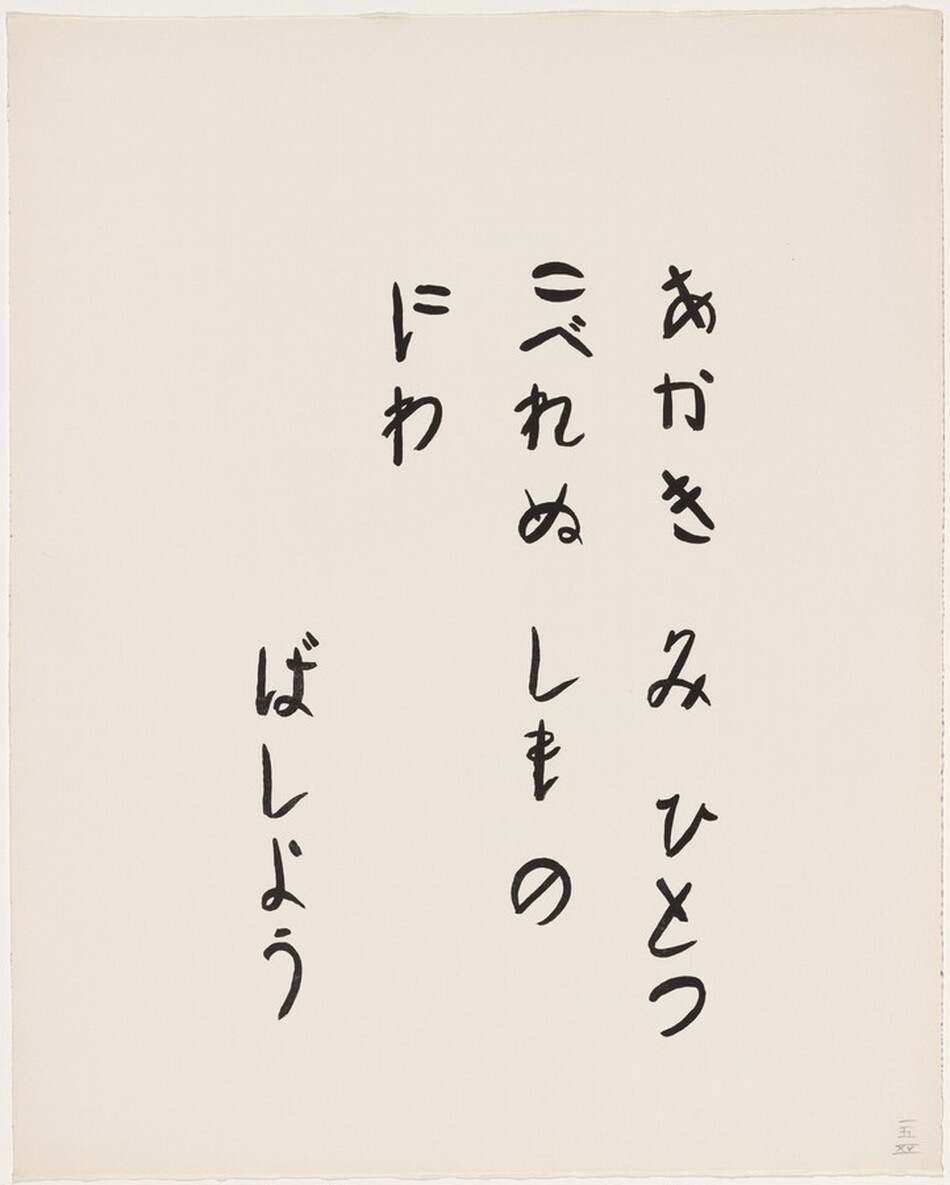 あかき み ひとつ
こべれぬ しもの
にわ
ばしよう
一五
XV